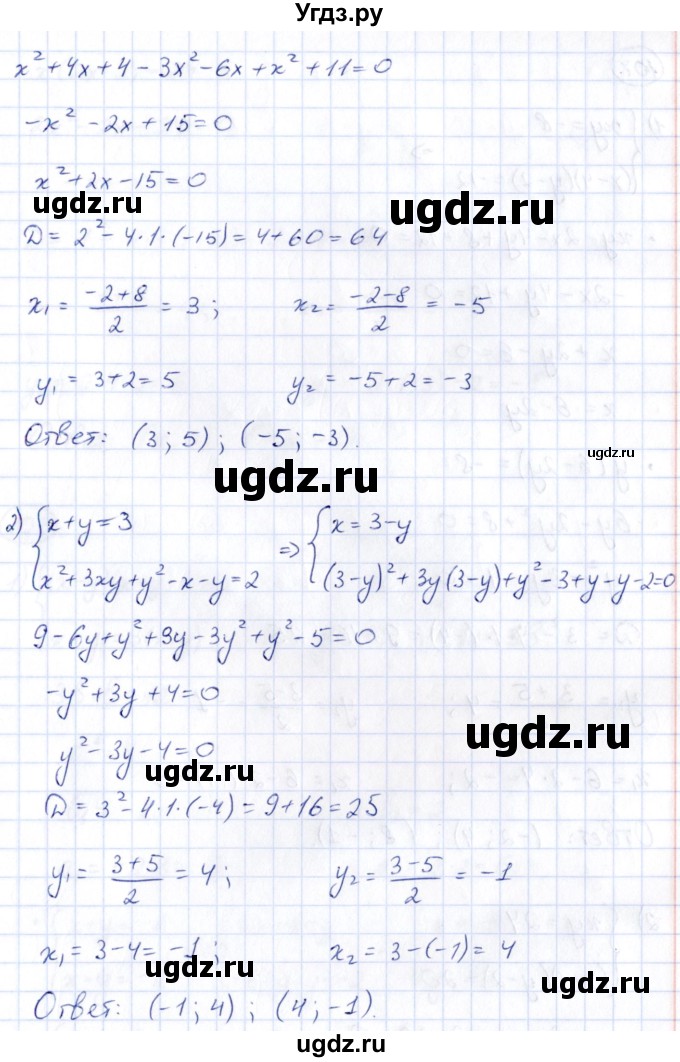 Угдз.ру
x² + 4x + 4 - 3x² - 6x + x² + 11 = 0
-x² - 2x + 15 = 0
x² + 2x - 15 = 0
ugdz.ru
ugdz.ru
D = 2² - 4·1·(-15) = 4 + 60 = 64
x₁ = (-2+8)/2 = 3; x₂ = (-2-8)/2 = -5
y₁ = 3+2 = 5 y₂ = -5+2 = -3
Ответ: (3; 5); (-5; -3).
ugdz.ru
ugdz.ru
2) { x+y=3 => { x = 3-y
x² + 3xy + y² - x - y = 2 (3-y)² + 3y(3-y) + y² - 3 + y - y - 2 = 0
9 - 6y + y² + 9y - 3y² + y² - 5 = 0
-y² + 3y + 4 = 0
ugdz.ru
y² - 3y - 4 = 0
ugdz.ru
D = 3² - 4·1·(-4) = 9 + 16 = 25
y₁ = (3+5)/2 = 4; y₂ = (3-5)/2 = -1
x₁ = 3-4 = -1; x₂ = 3-(-1) = 4
ugdz.ru
Ответ: (-1; 4); (4; -1).
ugdz.ru